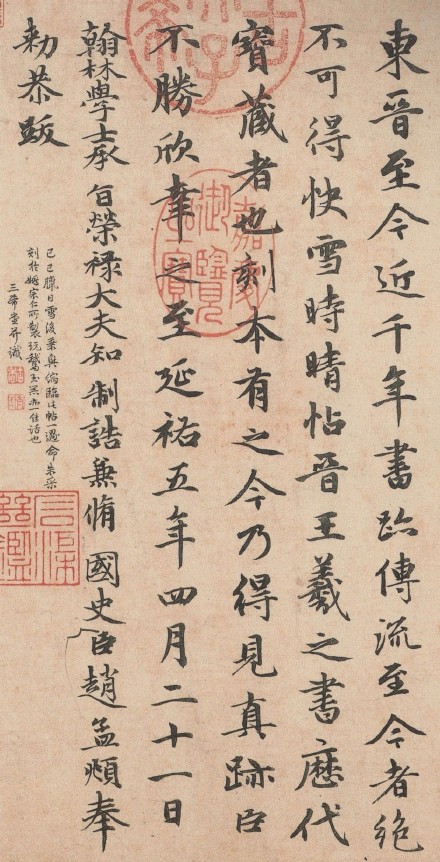 東晉至今近千年書跡傳流至今者絕
不可得快雪時晴帖晉王羲之書歷代
寶藏者也刻本有之今乃得見真跡臣
不勝欣幸之至延祐五年四月二十一日
翰林學士承旨榮祿大夫知制誥兼脩國史臣趙孟頫奉
勅恭跋
己巳臘日雪後乘興偶臨此帖一過命朱采
刻於姬宗仁所製玩鵞玉器亦一佳話也
三希堂并識
嘉慶御覽之寶